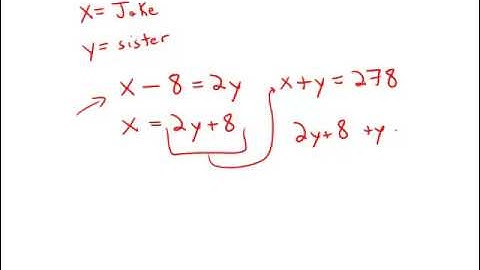 x = Jake
y = sister
x - 8 = 2y
x + y = 278
x = 2y + 8
2y + 8 + y